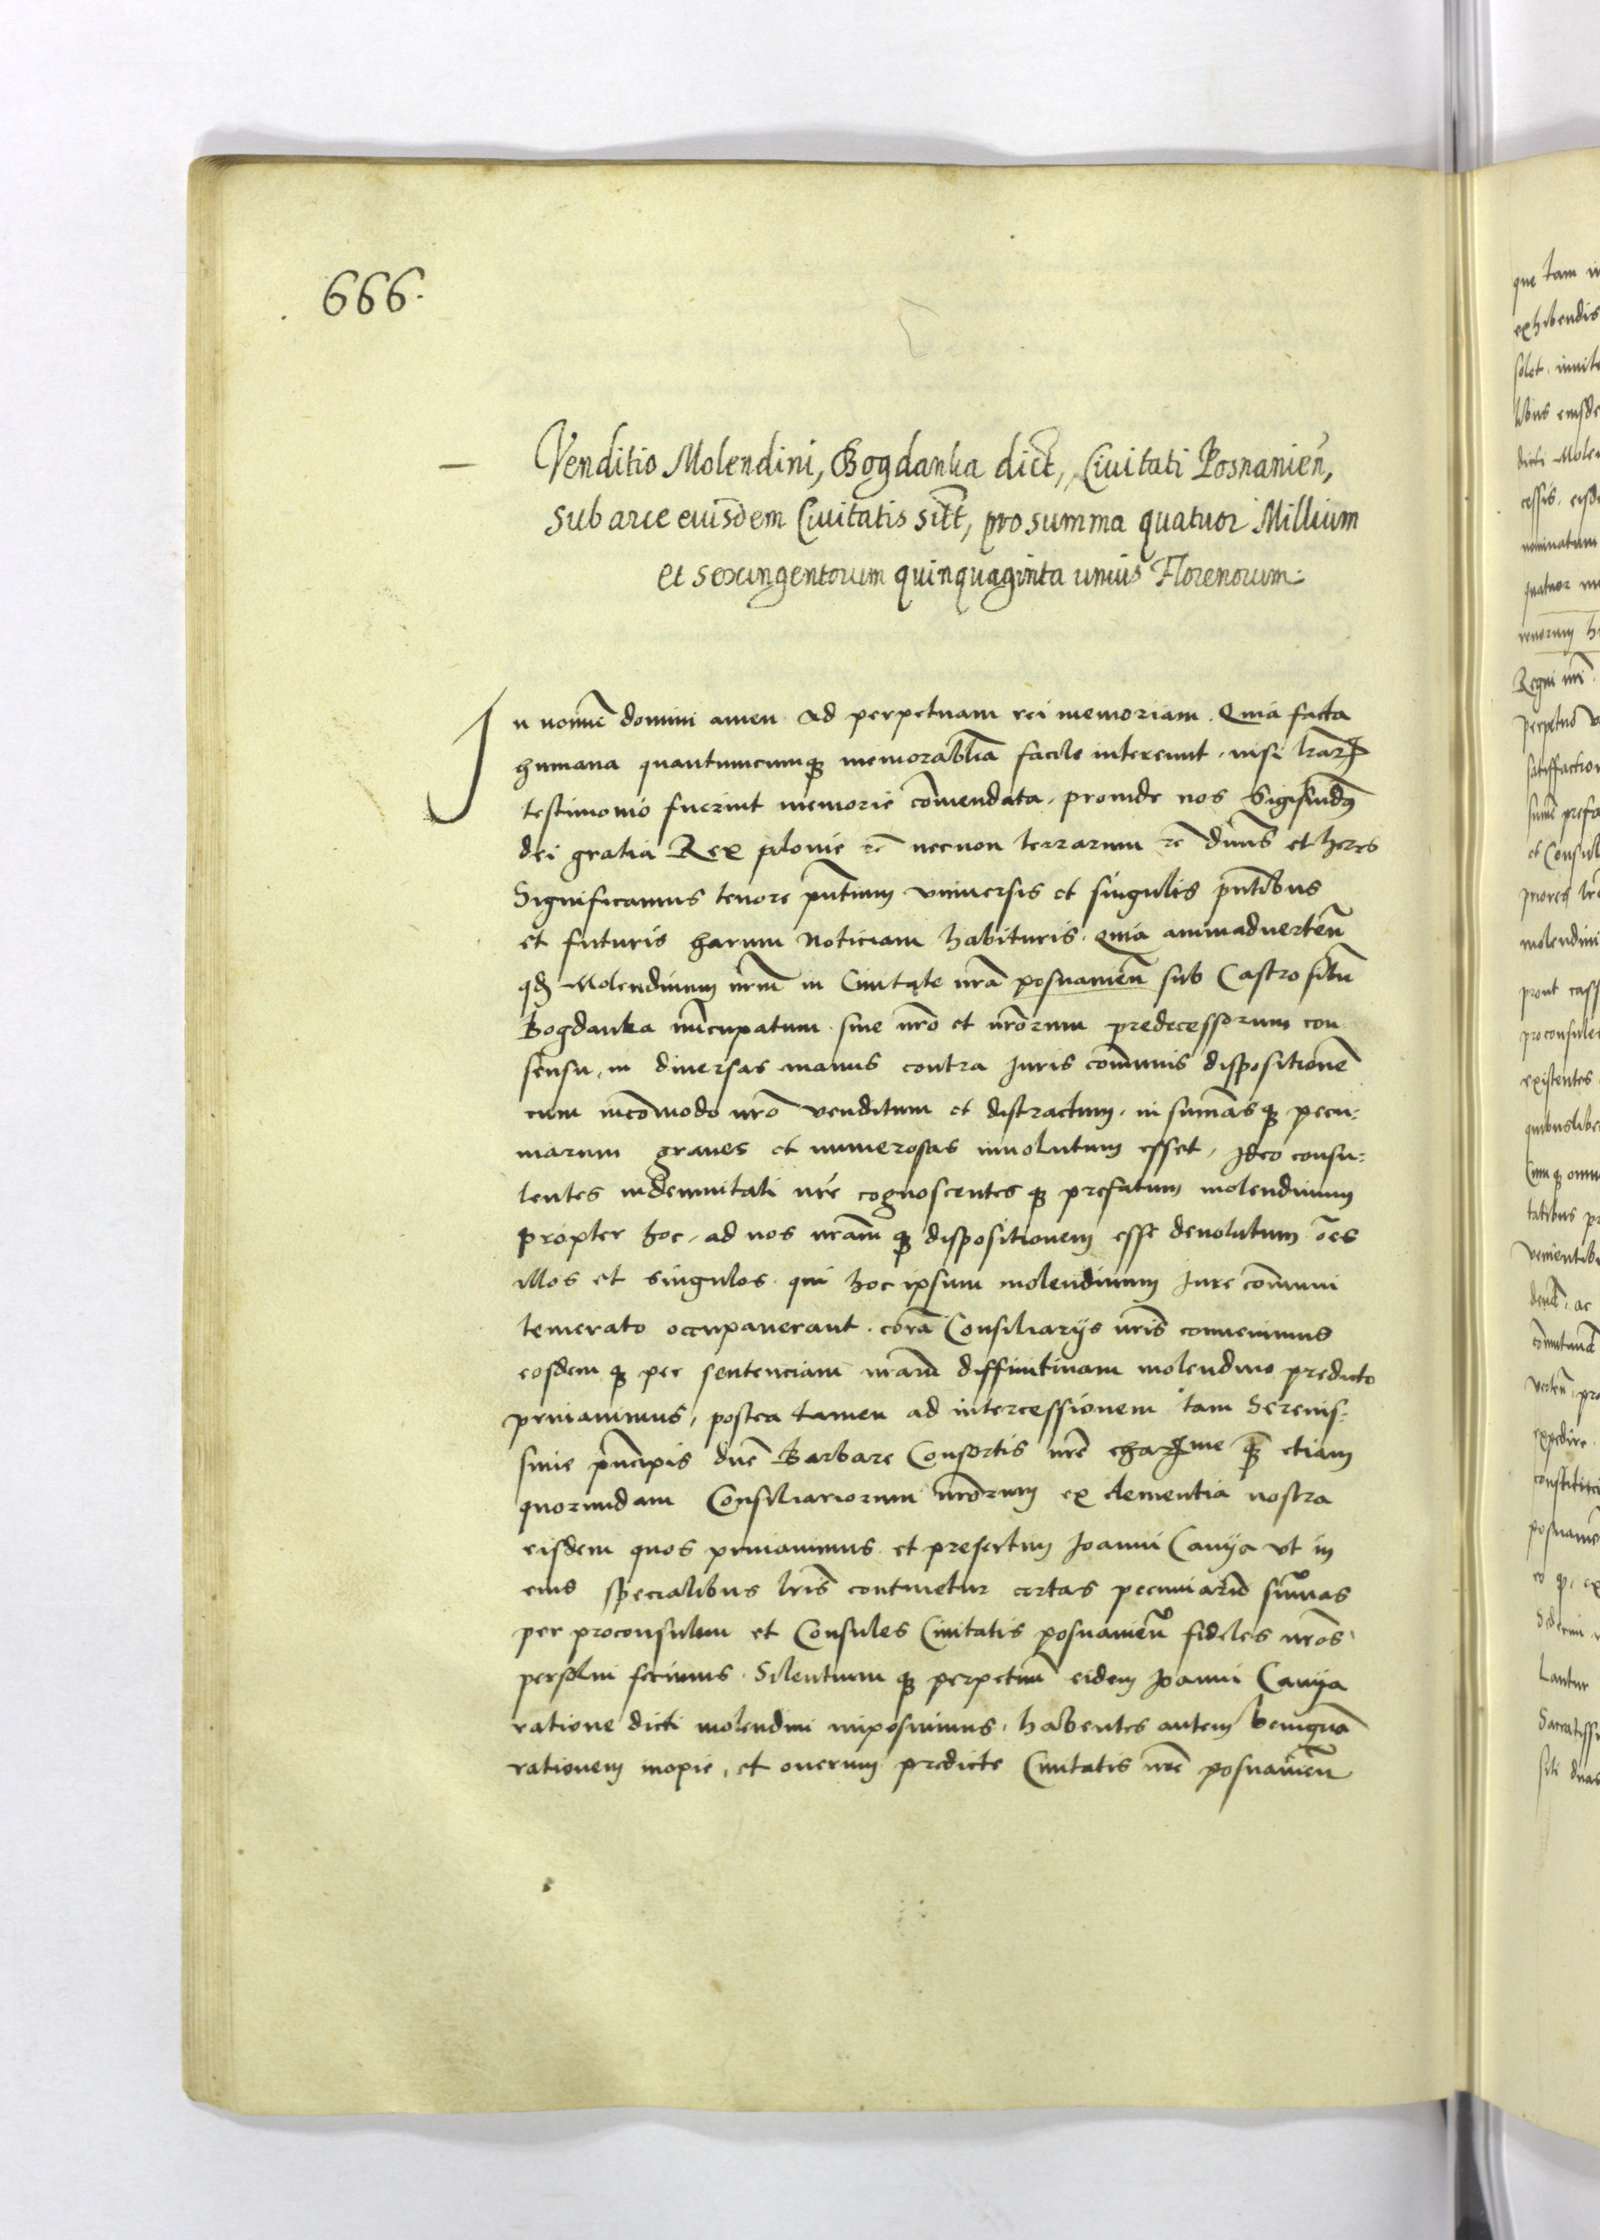 666.
Venditio Molendini, Bogdanka dict, Ciuitati Posnanien̄,
sub arce eiusdem Ciuitatis sitt, pro summa quatuor Millium
et sexingentorum quinquaginta unius Florenorum.
In nomīe domini amen Ad perpetuam rei memoriam. Quia facta
humana quantumcumqꝫ memorabilia facile intereunt. nisi lr̄arꝝ
testimonio fuerint memorie com̄endata. proinde nos Sigismūdꝰ
dei gratia Rex polonie ꝛc̄ necnon terrarum ꝛc̄ dūns et heres
Significamus tenore pn̄tium vniuersis et singulis pn̄tibus
et futuris harum noticiam habituris. Quia animaduerten̄
qđ Molendinum nr̄m in Ciuitate nr̄a posnanien̄ sub Castro sitū
Bogdanka nūcupatum. sine nr̄o et nr̄orum predecessorum con
sensu, in diuersas manus contra Juris com̄unis dispositionē
cum incōmodo nr̄o venditum et distractum. in sum̄asqꝫ pecu:
niarum graues et numerosas inuolutum esset, Ideo consu:
lentes indemnitati nr̄e cognoscentes qꝫ prefatum molendinum
propter hoc, ad nos nr̄amqꝫ dispositionem esse deuolutum om̄es
illos et singulos. qui hoc ipsum molendinum Jure com̄uni
temerato occupauerant. corā Consiliarijs nr̄is conuenimus
eosdem qꝫ per sentenciam nr̄am diffinitiuam molendino predicto
priuauimus, postea tamen ad intercessionem tam Serenis:
sime prīncipis dn̄e Barbare Consortis nr̄e charissime qꝫ etiam
quorundam Consiliariorum nr̄orum ex clementia nostra
eisdem quos priuauimus et presertim Joanni Canija vt in
eius specialibus lr̄is continetur certas pecuniarū sum̄as
per proconsulem et Consules Ciuitatis posnanien̄ fideles nr̄os
persolui fecimus. Silentium qꝫ perpetuū eidem Joanni Canija
ratione dicti molendini imposuimus, habentes autem benignā
rationem inopie, et onerum predicte Ciuitatis nr̄e posnanien̄